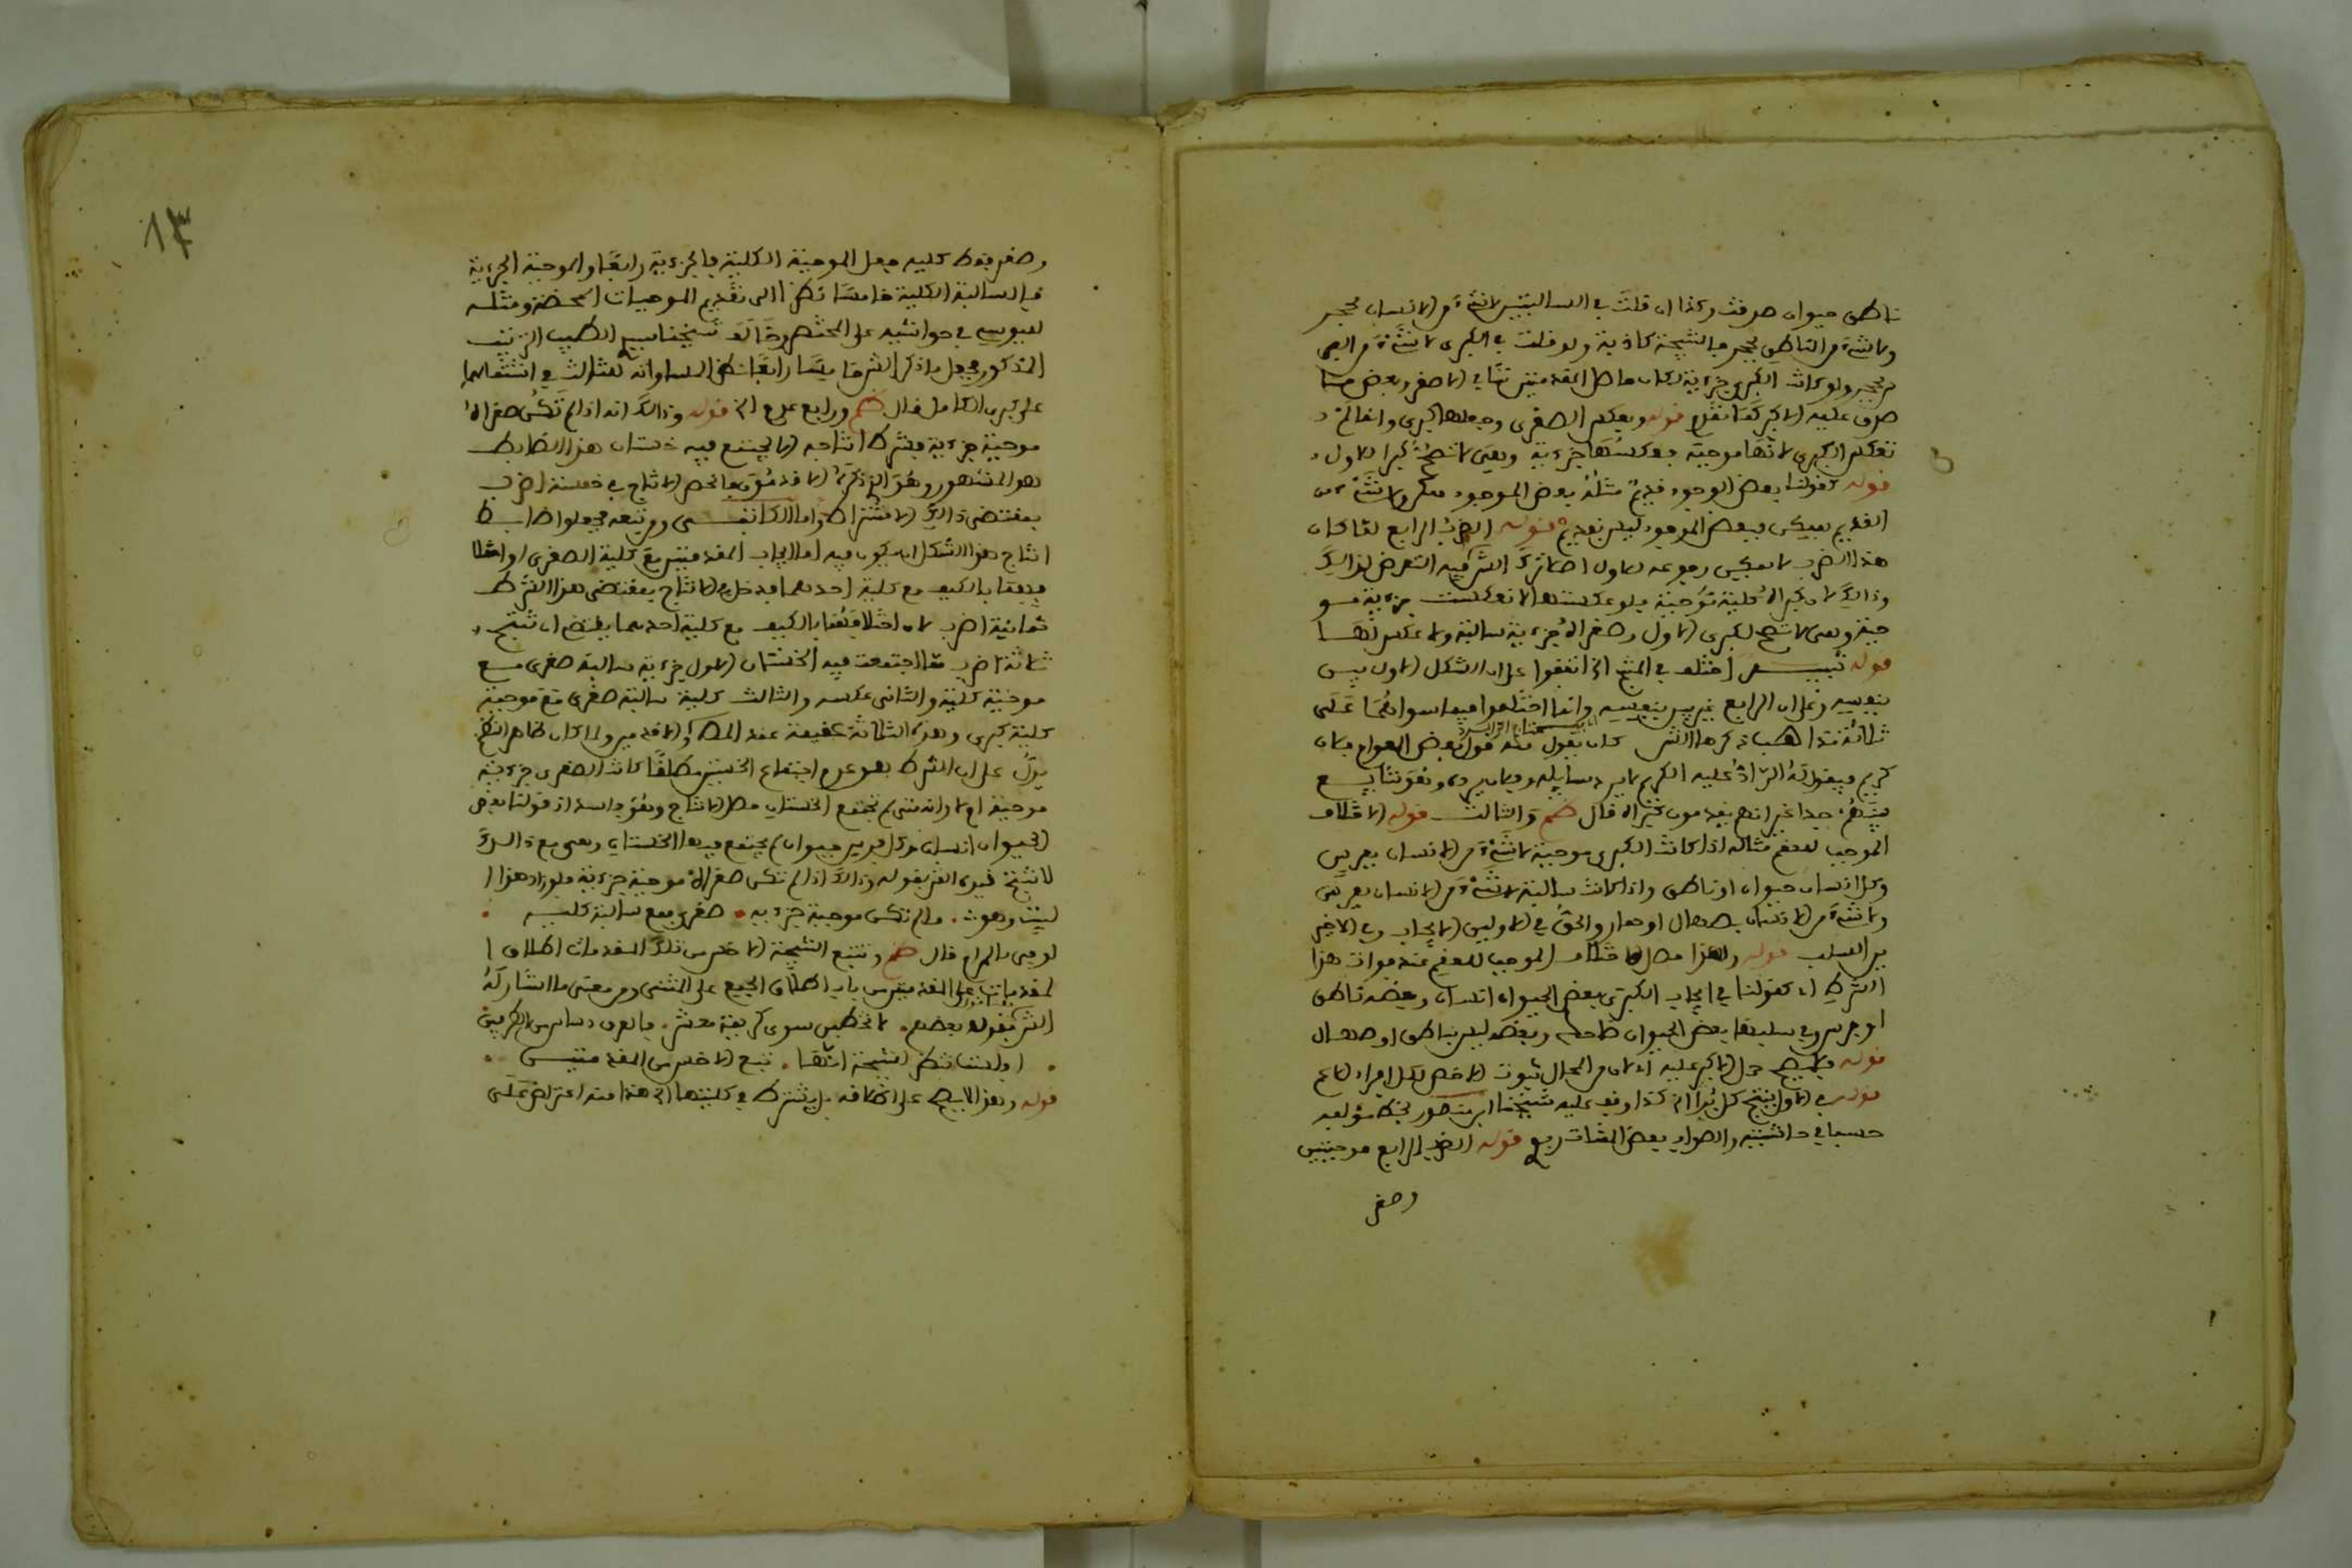 ناطق حيوان صدقت وكذا ان قلت في السالبتين لا شيء من الانسان بحجر
ولا شيء من الناطق بحجر فالنتيجة كاذبة ولو قلت في الكبرى لا شيء من
بحجر ولو كانت الكبرى جزءية لكان حاصل المقدمتين في الاصغر وبعض ما
صدق عليه الاكبر كما تقدم قوله وبعكس الصغرى وجعلها كبرى وانما لم
تعكس الكبرى لانها موجبة فعكسها جزءية وهي لا تصح كبرى الاول
قوله كقولنا بعض الوجود قديم مثله بعض الموجود ممكن ولا شيء من
القديم بممكن فبعض الموجود ليس بقديم قوله الضرب الرابع لما كان
هذا الضرب لا يمكن رجوعه للاول ترك الش فيه التعرض لذالك
وذالك لان كبراه كلية موجبة فلو عكستها لانعكست جزءية مو
جبة وهي لا تصح لكبرى الاول وصغراه جزءية سالبة ولا عكس لها
قوله تنبيه اختلف في المنتج الخ اتفقوا على ان الشكل الاول بين
بنفسه وعلى ان الرابع غير بين بنفسه وانما اختلفوا فيما سواهما على
ثلاثة مذاهب ذكرها الش كان يقول بعض العوام فلان
كريم فيقول له الراد عليه الكريم لا يرد سايله وفلان يرده وهو شايع
عندهم جدا غير انهم يقدمون كبراه قال ص والثالث قوله الاختلاف
الموجب للعقم مثاله اذا كانت الكبرى موجبة لا شيء من الانسان بفرس
وكل انسان حيوان او ناطق واذا كانت سالبة لا شيء من الانسان بفرس
ولا شيء من الانسان بصهال او حمار والحق في الاولين الايجاب وفي الاخير
ين السلب قوله ولهذا حصل الاختلاف الموجب للعقم عند فوات هذا
الشرط اي كقولنا في ايجاب الكبرى بعض الحيوان انسان وبعضه ناطق
او فرس وفي سلبها بعض الحيوان ضاحك وبعضه ليس بناطق او صهال
قوله فيصح حمل الاكبر عليه اذ لا من المحال ثبوت الاخص لكل افراد الاعم
قوله في الاول ينتج كل الخ كذا وقف عليه شيخنا ابن منصور بخط مؤلفه
حسبما في حاشيته والصواب بعض قوله الضرب الرابع موجبتين
وصغر
١٣
وصغر فقط كليه جعل الموجبة الكلية فالجزءية رابعا والموجبة الجزءية
فالسالبة الكلية خامسا نظرا الى تقديم الموجبات المحضة ومثله
لليوسي في حواشيه على المختصر وخالف شيخنا الطيب
المذكور فجعل ما ذكر الش خامسا رابعا نظرا لمساواته للثالث في اشتمالهما
على كبرى الكامل قال ص ورابع عدم الخ قوله وذالك انه اذا لم تكن صغراه
موجبة جزءية فشرط انتاجه الا يجتمع فيه خستان هذا الضابط
هو المشهور وهو الذي ذكره الاقدمون فانحصر الانتاج في خمسة اضرب
بمقتضى ذالك الاشتراط واما الكاتبي ومن تبعه فجعلوا ضابط
انتاج هذا الشكل ان يكون فيه اما ايجاب المقدمتين مع كلية الصغرى او اختلا
فهما بالكيف مع كلية احدهما فدخل في الانتاج بمقتضى هذا الشرط
ثمانية اضرب لان اختلافهما بالكيف مع كلية احدهما يقتضي ان تنتج
ثلاثة اضرب مما اجتمعت فيه الخستان الاول جزءية سالبة صغرى مع
موجبة كلية والثاني عكسه والثالث كلية سالبة صغرى مع موجبة
كلية كبرى وهذه الثلاثة عقيمة عند المص والاقدمين ولما كان ظاهر النظم
يدل على ان الشرط هو عدم اجتماع الخستين مطلقا كانت الصغرى جزءية
موجبة ام لا وانه متى لم تجتمع الخستان حصل الانتاج وهو فاسد اذ قولنا بعض
الحيوان انسان وكل فرس حيوان لم يجتمع فيهما الخستان وهي مع ذالك
لا تنتج قيده الش بقوله وذالك اذا لم تكن صغراه موجبة جزءية فلو زاد هذا ا
لبيت وهو. ما لم تكن موجبة جزءيه. صغرى فمع سالبة كليه .
لوفى بالمراد قال ص وتتبع النتيجة الاخس من تلك المقدمات اطلاق ا
لمقدمات على المقدمتين من باب اطلاق الجمع على المثنى ومن معنى ما اشار له
الش قول بعضهم. لا تخطبن سوى كريمة معشر. فالعرق دساس من الطرفين
. اولست تنظر النتيجة انها. تبع الاخس من المقدمتين .
قوله وهذا لا يصح على اطلاقه بل يشترط في كليتها الخ هذا منه اعتراض على